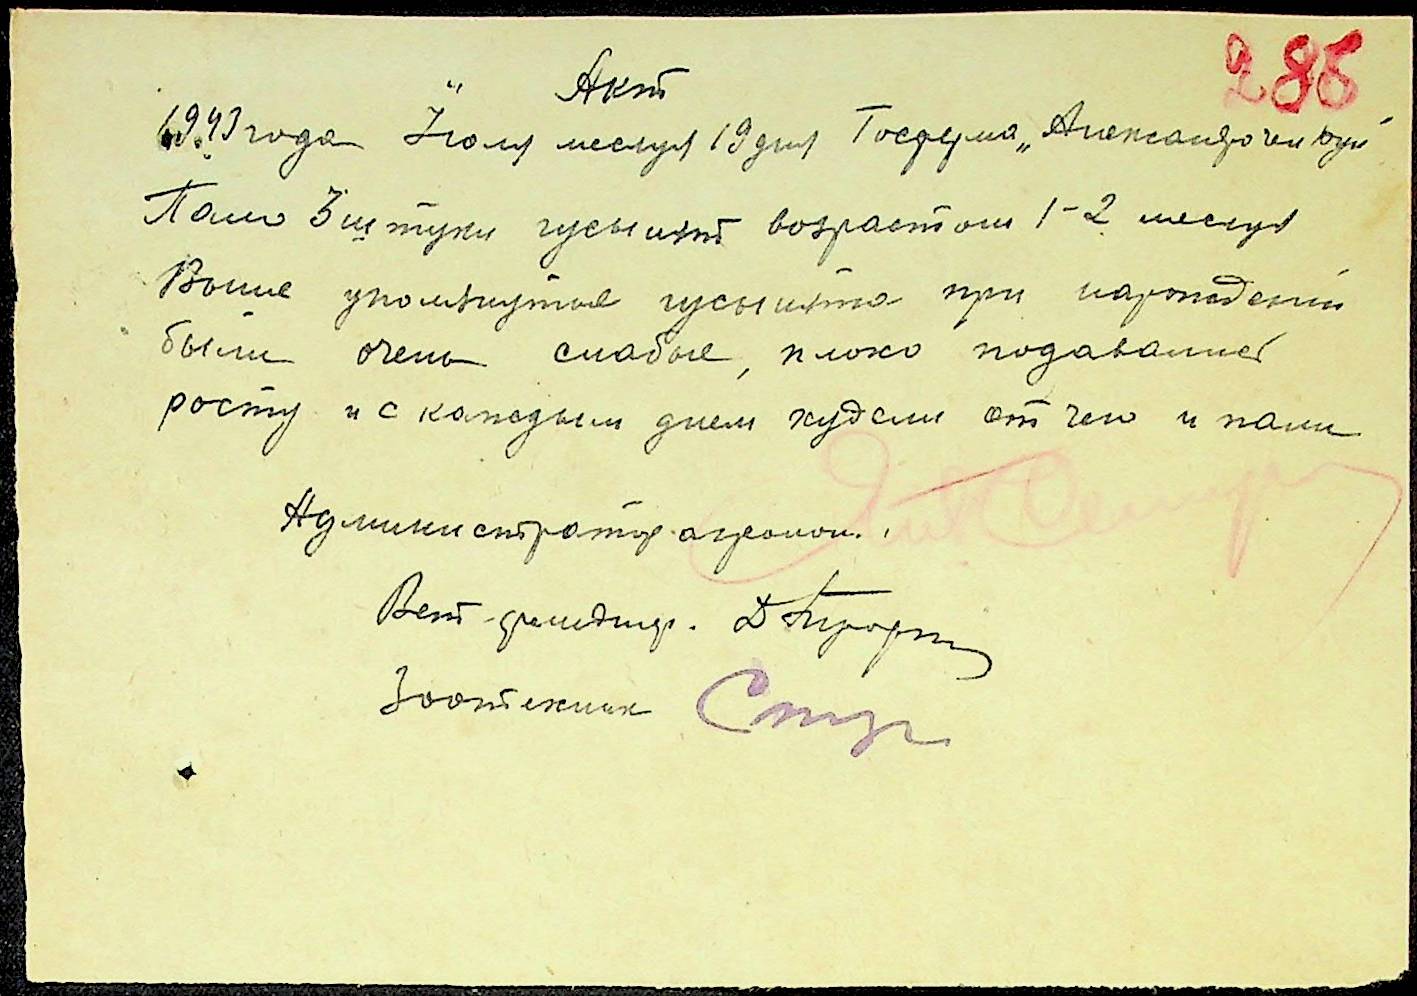 286
Акт
1943 года Июля месяца 19 дня Госферма „Александро
Пало 3 штуки гусынят возрастом 1-2 месяца
Выше упомянутые гусынята при нарождении
были очень слабые, плохо подавались
росту и с каждым днем худели от чего и пали
Администратор агроном.
Вет-фельдшер.
Зоотехник